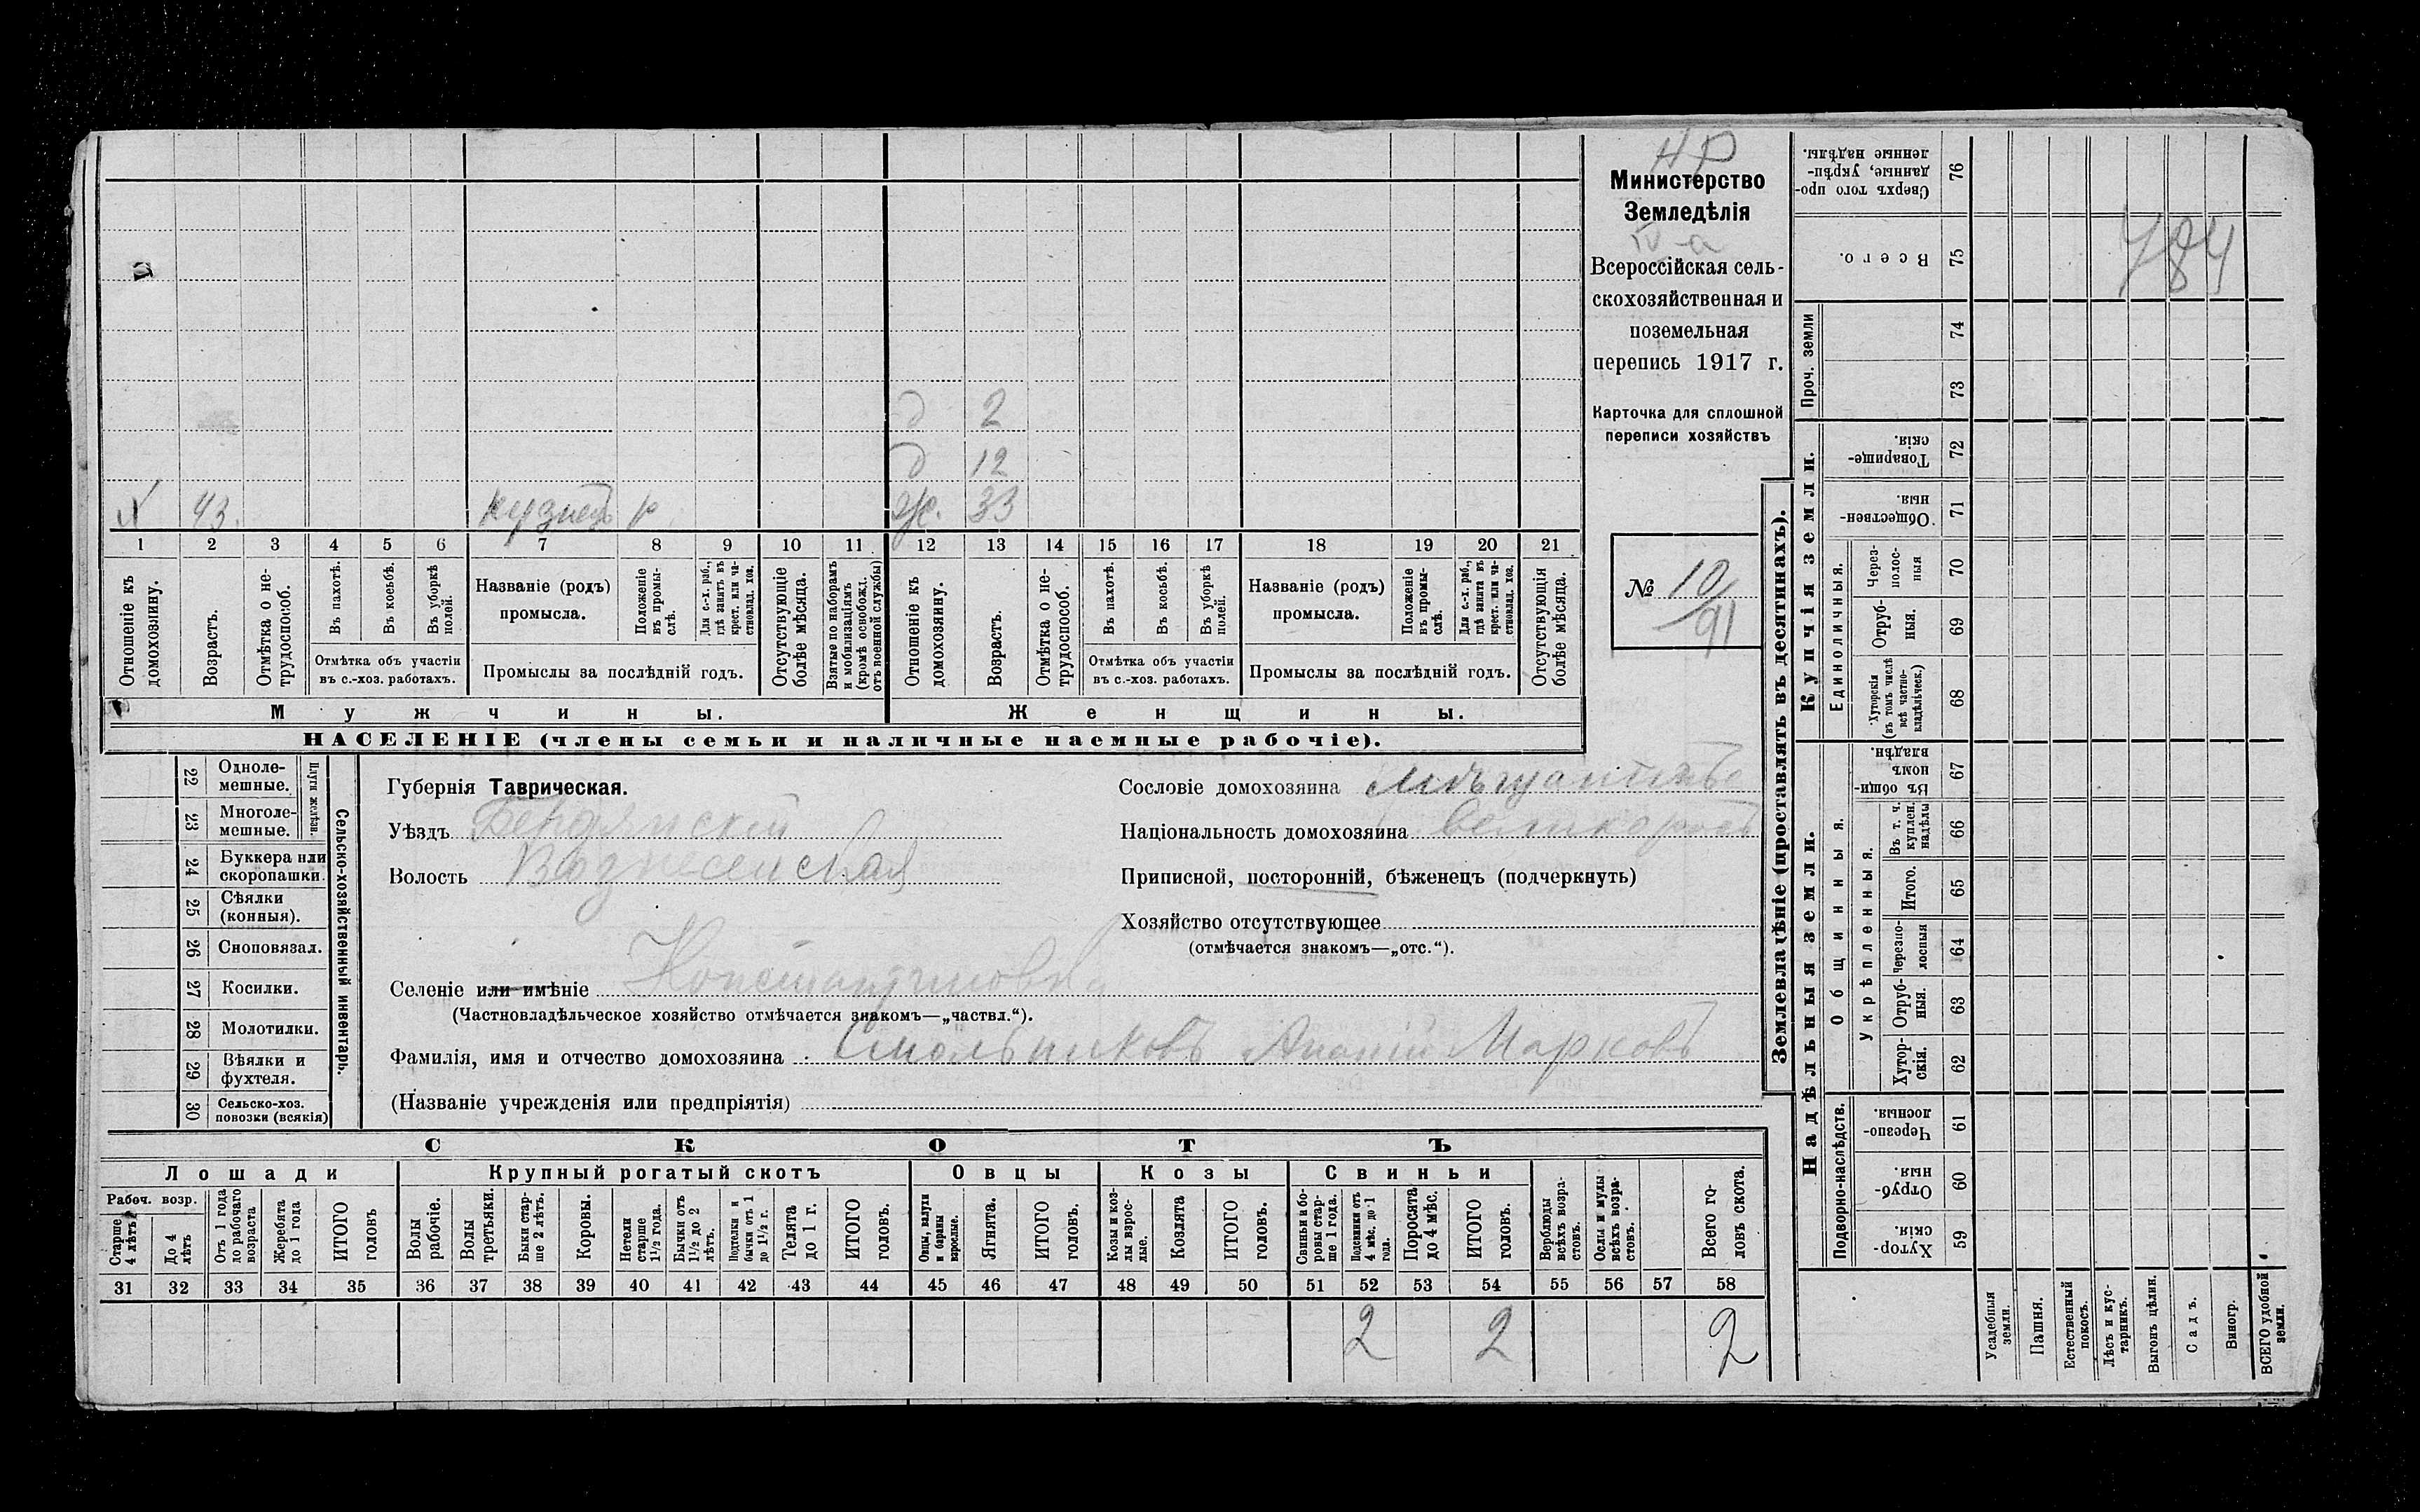 НР
Министерство
Земледѣлія
IV-а
Всероссійская сель-
скохозяйственная и
поземельная
перепись 1917 г.
Карточка для сплошной
переписи хозяйствъ
№ 10
91
784
д 2
д 12
х 43 кузнецъ р ж. 33
1 2 3 4 5 6 7 8 9 10 11 12 13 14 15 16 17 18 19 20 21
Отношеніе къ домохозяину.
Возрастъ.
Отмѣтка о не-трудоспособ.
Въ пахотѣ.
Въ косьбѣ.
Въ уборкѣ полей.
Отмѣтка объ участіи
въ с.-хоз. работахъ.
Названіе (родъ)
промысла.
Положеніе въ промы-слѣ.
Для с.-х. раб., гдѣ занятъ въ крест. или ча-стновлад. хоз.
Промыслы за послѣдній годъ.
Отсутствующіе болѣе мѣсяца.
Взятые по наборамъ и мобилизаціямъ (кромѣ освобожд. отъ военной службы)
Отношеніе къ домохозяину.
Возрастъ.
Отмѣтка о не-трудоспособ.
Въ пахотѣ.
Въ косьбѣ.
Въ уборкѣ полей.
Отмѣтка объ участіи
въ с.-хоз. работахъ.
Названіе (родъ)
промысла.
Положеніе въ промы-слѣ.
Для с.-х. раб., гдѣ занята въ крест. или ча-стновлад. хоз.
Промыслы за послѣдній годъ.
Отсутствующія болѣе мѣсяца.
Мужчины.
Женщины.
НАСЕЛЕНІЕ (члены семьи и наличные наемные рабочіе).
22 Одноле-мешные.
23 Многоле-мешные.
Плуги желѣзн.
24 Буккера или скоропашки.
25 Сѣялки (конныя).
26 Сноповязал.
27 Косилки.
28 Молотилки.
29 Вѣялки и фухтеля.
30 Сельско-хоз. повозки (всякія)
Сельско-хозяйственный инвентарь.
Губернія Таврическая.
Уѣздъ Бердянскій
Волость Вознесенская
Селеніе или имѣніе Константиновка
(Частновладѣльческое хозяйство отмѣчается знакомъ—„частвл.“).
Фамилія, имя и отчество домохозяина Смольниковъ Ананій Марковъ
(Названіе учрежденія или предпріятія)
Сословіе домохозяина мѣщанинъ
Національность домохозяина великороссъ
Приписной, посторонній, бѣженецъ (подчеркнуть)
Хозяйство отсутствующее
(отмѣчается знакомъ—„отс.“).
СКОТЪ
Лошади
Крупный рогатый скотъ
Овцы
Козы
Свиньи
Рабоч. возр.
Старше 4 лѣтъ
До 4 лѣтъ
Отъ 1 года до рабочаго возраста
Жеребята до 1 года
ИТОГО головъ
Волы рабочіе.
Волы третьяки.
Быки стар-ше 2 лѣтъ.
Коровы.
Нетели старше 1½ года.
Бычки отъ 1½ до 2 лѣтъ.
Подтелки и бычки отъ 1 до 1½ г.
Телята до 1 г.
ИТОГО головъ.
Овцы, валухи и бараны взрослые.
Ягнята.
ИТОГО головъ.
Козы и коз-лы взрос-лые.
Козлята
ИТОГО головъ.
Свиньи и бо-ровы стар-ше 1 года.
Подсвинки отъ 4 мѣс. до 1 года.
Поросята до 4 мѣс.
ИТОГО головъ.
Верблюды всѣхъ возра-стовъ.
Ослы и мулы всѣхъ возра-стовъ.
Всего го-ловъ скота.
31 32 33 34 35 36 37 38 39 40 41 42 43 44 45 46 47 48 49 50 51 52 53 54 55 56 57 58
2 2 2
Землевладѣніе (проставлять въ десятинахъ).
Купчія земли.
Надѣльныя земли.
Сверхъ того про-данные, укрѣп-ленные надѣлы. 76
Всего. 75
Проч. земли
74
73
Товарище-скія. 72
Обществен-ныя. 71
Единоличныя.
Через-полос-ныя 70
Отруб-ныя. 69
Хуторскія (въ томъ числѣ всѣ частно-владѣльческ.) 68
Общинныя.
Въ общи-номъ владѣн. 67
Укрѣпленныя.
Въ т. ч. куплен. надѣлы 66
Итого. 65
Черезпо-лосныя 64
Отруб-ныя. 63
Хутор-скія. 62
Подворно-наслѣдств.
Черезпо-лосныя. 61
Отруб-ныя. 60
Хутор-скія. 59
Усадебныя земли.
Пашня.
Естественный покосъ.
Лѣсъ и кус-тарникъ.
Выгонъ цѣлин.
Садъ.
Виногр.
ВСЕГО удобной земли.